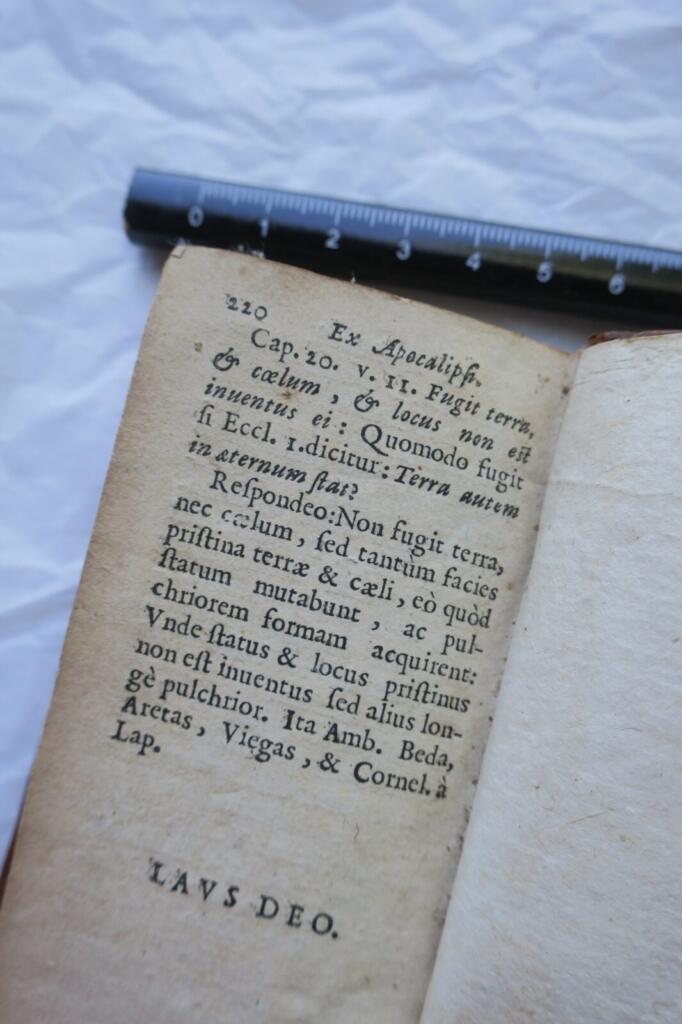 0 1 2 3 4 5 6
220 Ex Apocalipſi.
Cap. 20. v. 11. Fugit terra,
& cœlum, & locus non eſt
inuentus ei: Quomodo fugit
ſi Eccl. 1. dicitur: Terra autem
in æternum ſtat?
Reſpondeo: Non fugit terra,
nec cœlum, ſed tantùm facies
priſtina terræ & cæli, eò quòd
ſtatum mutabunt, ac pul-
chriorem formam acquirent:
Vnde ſtatus & locus priſtinus
non eſt inuentus ſed alius lon-
gè pulchrior. Ita Amb. Beda,
Aretas, Viegas, & Cornel. à
Lap.
LAVS DEO.